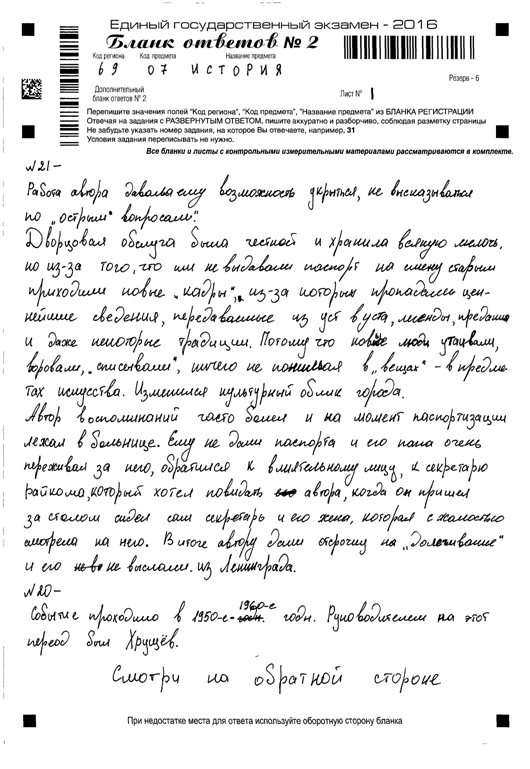 Единый государственный экзамен - 2016
Бланк ответов № 2
Код региона Код предмета Название предмета
69 07 ИСТОРИЯ
Резерв - 6
Дополнительный
бланк ответов № 2
Лист № 1
Перепишите значения полей "Код региона", "Код предмета", "Название предмета" из БЛАНКА РЕГИСТРАЦИИ
Отвечая на задания с РАЗВЕРНУТЫМ ОТВЕТОМ, пишите аккуратно и разборчиво, соблюдая разметку страницы
Не забудьте указать номер задания, на которое Вы отвечаете, например, 31
Условия задания переписывать не нужно.
Все бланки и листы с контрольными измерительными материалами рассматриваются в комплекте.
№21-
Работа автора давала ему возможность укрыться, не высказываться
по „острым" вопросам".
Дворцовая обслуга была честной и хранила всякую мелочь,
но из-за того, что им не выдавали паспорт на смену старым
приходили новые „кадры", из-за которых пропадали цен-
нейшие сведения, передаваемые из уст в уста, легенды, предания
и даже некоторые традиции. Потому что новые люди утаивали,
воровали, „списывали", ничего не понимая в „вещах" - в предме-
тах искусства. Изменился культурный облик города.
Автор воспоминаний часто болел и на момент паспортизации
лежал в больнице. Ему не дали паспорта и его папа очень
переживал за него, обратился к влиятельному лицу, к секретарю
райкома, который хотел повидать автора, когда он пришел
за столом сидел сам секретарь и его жена, которая с жалостью
смотрела на него. В итоге автору дали отсрочку на „долечивание"
и его не выслали. из Ленинграда.
№20-
Событие проходило в 1950-е- 1960-е годы. Руководителем на этот
период был Хрущёв.
Смотри на обратной стороне
При недостатке места для ответа используйте оборотную сторону бланка